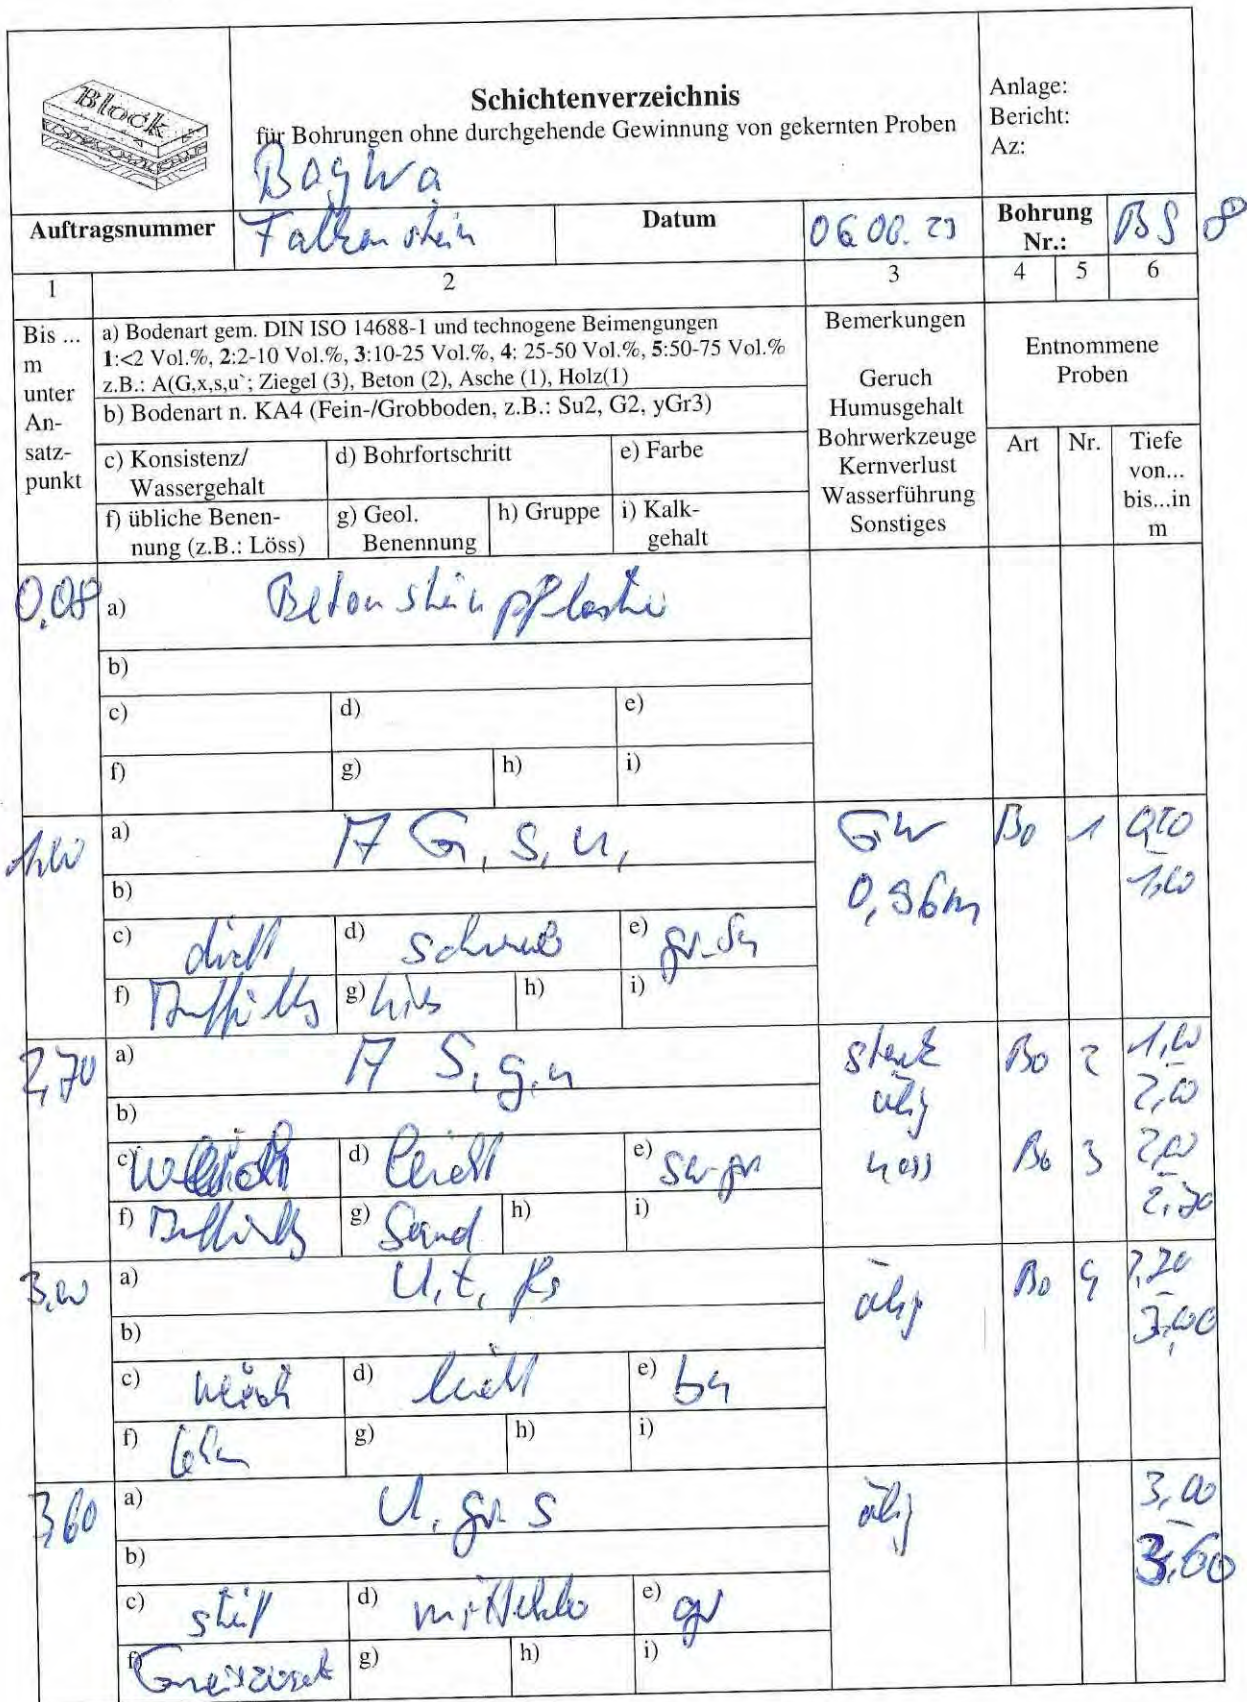 Block
Schichtenverzeichnis
für Bohrungen ohne durchgehende Gewinnung von gekernten Proben
Anlage:
Bericht:
Az:
Auftragsnummer
Falkenstein
Datum
Bohrung Nr.:
BS 8
1 2 3 4 5 6
Bis ... m unter An-satz-punkt
a) Bodenart gem. DIN ISO 14688-1 und technogene Beimengungen
1:<2 Vol.%, 2:2-10 Vol.%, 3:10-25 Vol.%, 4: 25-50 Vol.%, 5:50-75 Vol.%
z.B.: A(G,x,s,u`; Ziegel (3), Beton (2), Asche (1), Holz(1)
b) Bodenart n. KA4 (Fein-/Grobboden, z.B.: Su2, G2, yGr3)
c) Konsistenz/
Wassergehalt
d) Bohrfortschritt
e) Farbe
f) übliche Benen-
nung (z.B.: Löss)
g) Geol.
Benennung
h) Gruppe
i) Kalk-
gehalt
Bemerkungen
Geruch
Humusgehalt
Bohrwerkzeuge
Kernverlust
Wasserführung
Sonstiges
Entnommene
Proben
Art
Nr.
Tiefe
von...
bis...in
m
0,08
a) Betonsteinpflaster
b)
c)
d)
e)
f)
g)
h)
i)
1,00
a) A G, s, u,
b)
c) dicht
d) schwer
e)
f) Auffüllg
g) Kies
h)
i)
GW
0,96m
Bo 1
1,00
2,70
a) A S, g, u
b)
c) weich
d) leicht
e) sw-gr
f) Auffüllg
g) Sand
h)
i)
stark
ölig
nass
Bo 2 1,00
2,00
Bo 3 2,00
2,70
3,00
a) U, t, fs
b)
c) weich
d) leicht
e) bn
f) Lehm
g)
h)
i)
ölig
Bo 4 2,70
3,00
3,60
a)
b)
c) steif
d)
e) gr
f) Gneiszersatz
g)
h)
i)
ölig
3,00
3,60